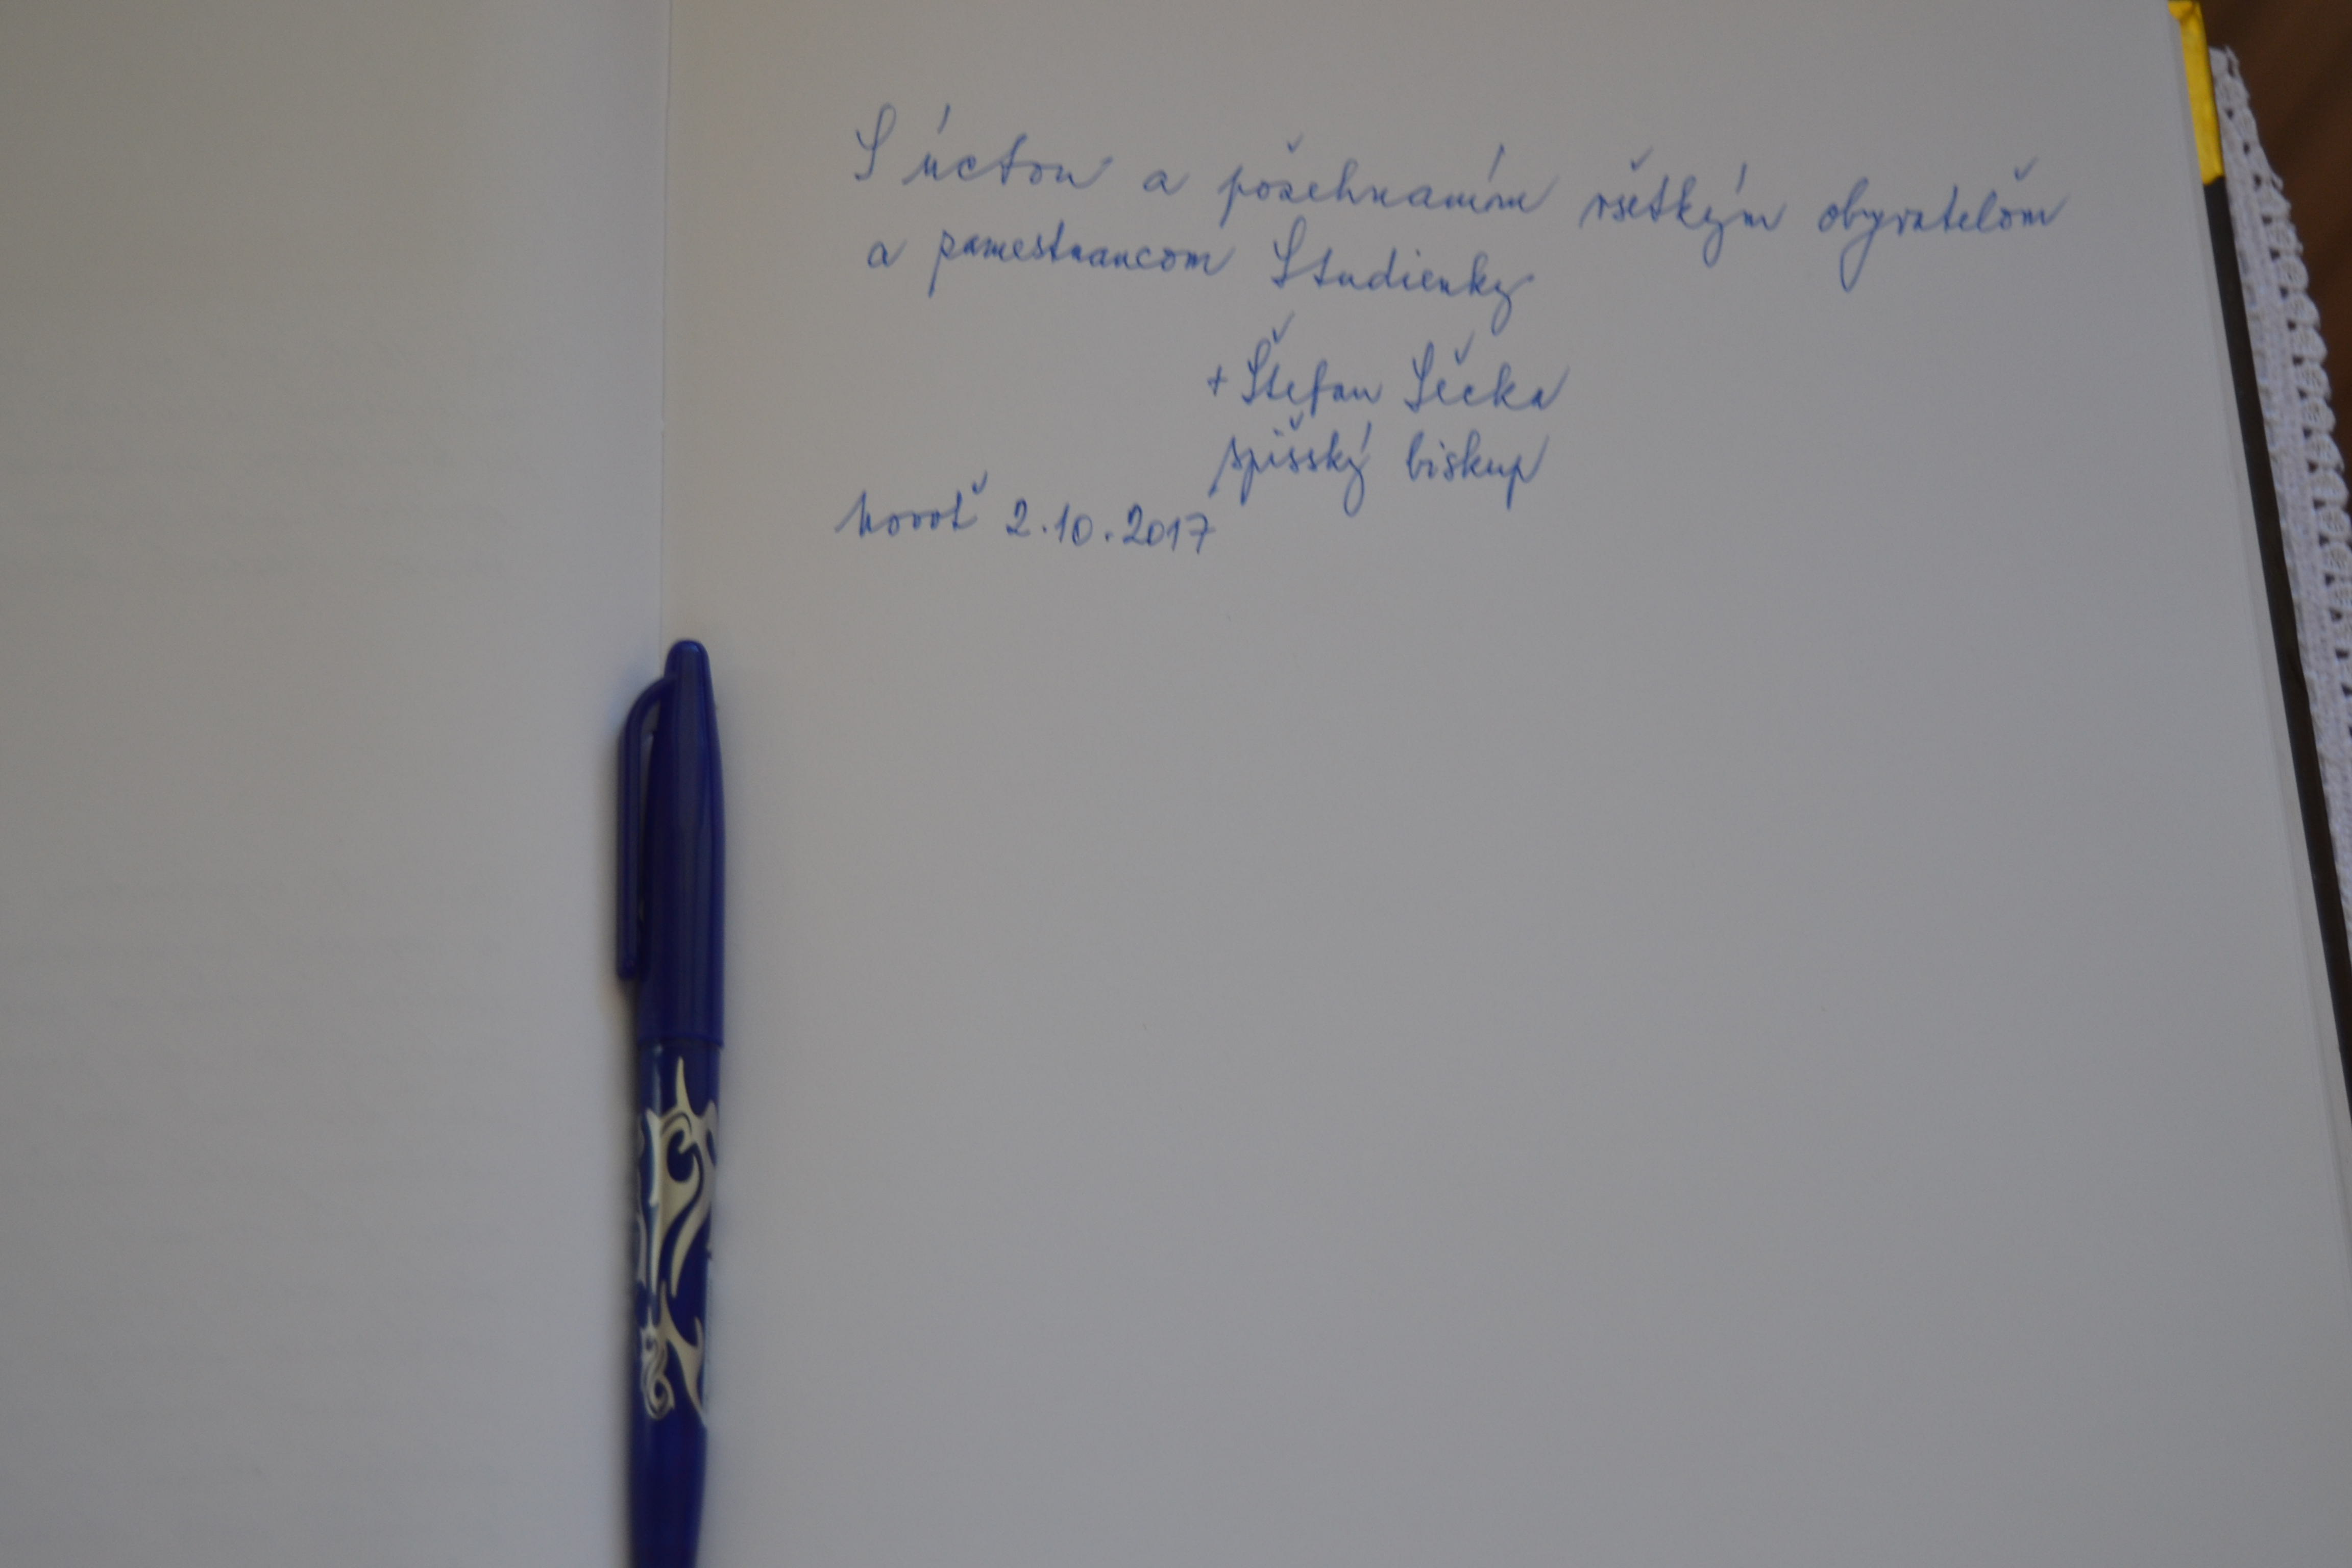 S úctou a požehnaním všetkým obyvateľom
a zamestnancom Studienky
+ Štefan Sečka
spišský biskup
Novoť 2.10.2017